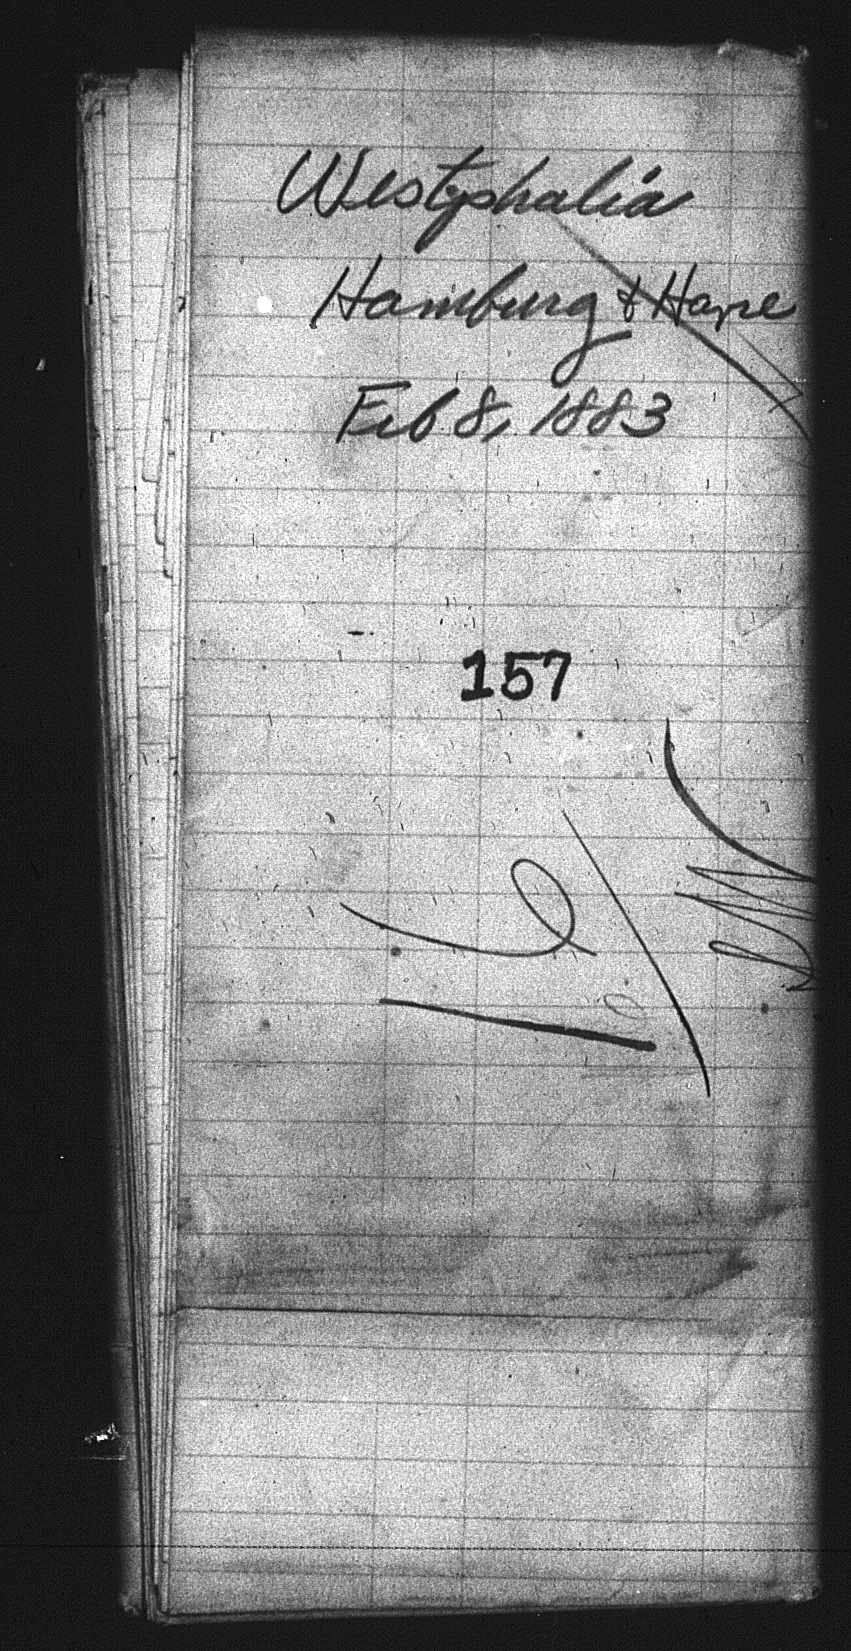 Westphalia
Hamburg & Havre
Feb 8, 1883
157